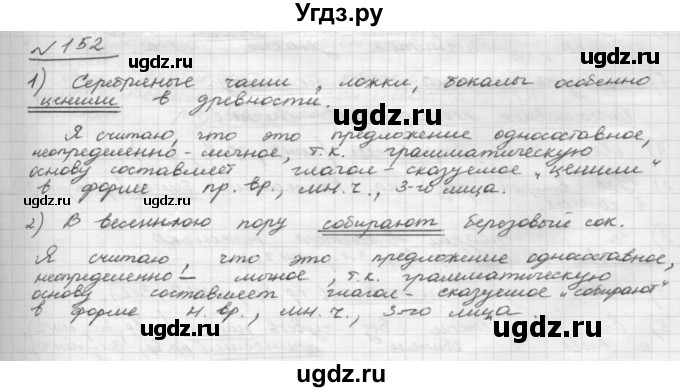 Угдз.ру
№152
1) Серебряные чаши, ложки, бокалы особенно
ценили в древности.
Я считаю, что это предложение односоставное,
неопределенно-личное, т.к. грамматическую
основу составляет глагол-сказуемое "ценили"
в форме пр. вр., мн.ч., 3-го лица.
2) В весеннюю пору собирают березовый сок.
Я считаю, что это предложение односоставное,
неопределенно-личное, т.к. грамматическую
основу составляет глагол-сказуемое "собирают"
в форме н. вр., мн. ч., 3-го лица
ugdz.ru
ugdz.ru
ugdz.ru
ugdz.ru
ugdz.ru
ugdz.ru
ugdz.ru
ugdz.ru
ugdz.ru
ugdz.ru
ugdz.ru
ugdz.ru